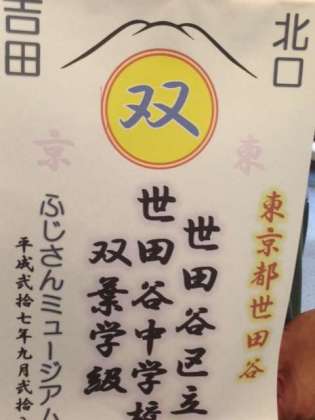 北口
吉田
双
東
京
東京都世田谷
世田谷区立
世田谷中学校
双葉学級
ふじさんミュージアム
平成弐拾七年九月弐拾